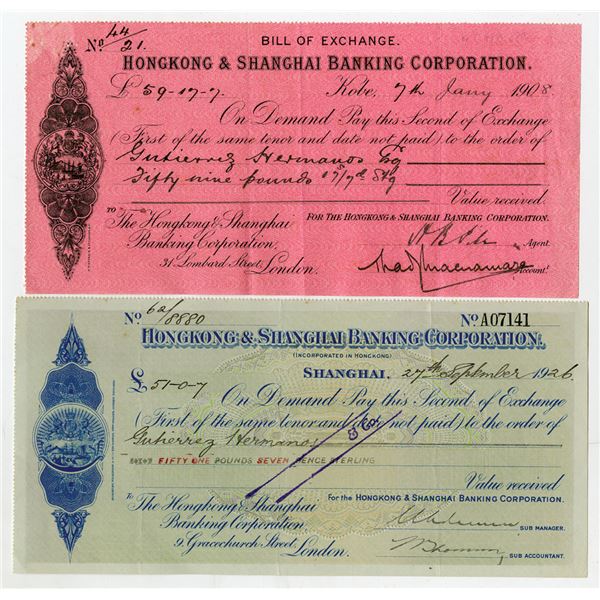 No 44/21.
BILL OF EXCHANGE.
HONGKONG & SHANGHAI BANKING CORPORATION.
£ 59-17-7. Kobe, 7th Jany 1908.
On Demand Pay this Second of Exchange
(First of the same tenor and date not paid) to the order of
Gutierrez Hermanos
Fifty nine pounds 17s/7d Stg
Value received.
TO
The Hongkong & Shanghai
Banking Corporation.
31, Lombard Street, London.
FOR THE HONGKONG & SHANGHAI BANKING CORPORATION.
Agent.
Account!
No 62/8880
No A07141
HONGKONG & SHANGHAI BANKING CORPORATION.
(INCORPORATED IN HONGKONG)
SHANGHAI, 27th September 1926.
£ 51-0-7
On Demand Pay this Second of Exchange
(First of the same tenor and date not paid) to the order of
Gutierrez Hermanos
& Co.
FIFTY ONE POUNDS SEVEN PENCE STERLING
Value received
To
The Hongkong & Shanghai
Banking Corporation,
9, Gracechurch Street, London.
For the HONGKONG & SHANGHAI BANKING CORPORATION.
SUB MANAGER.
SUB ACCOUNTANT.